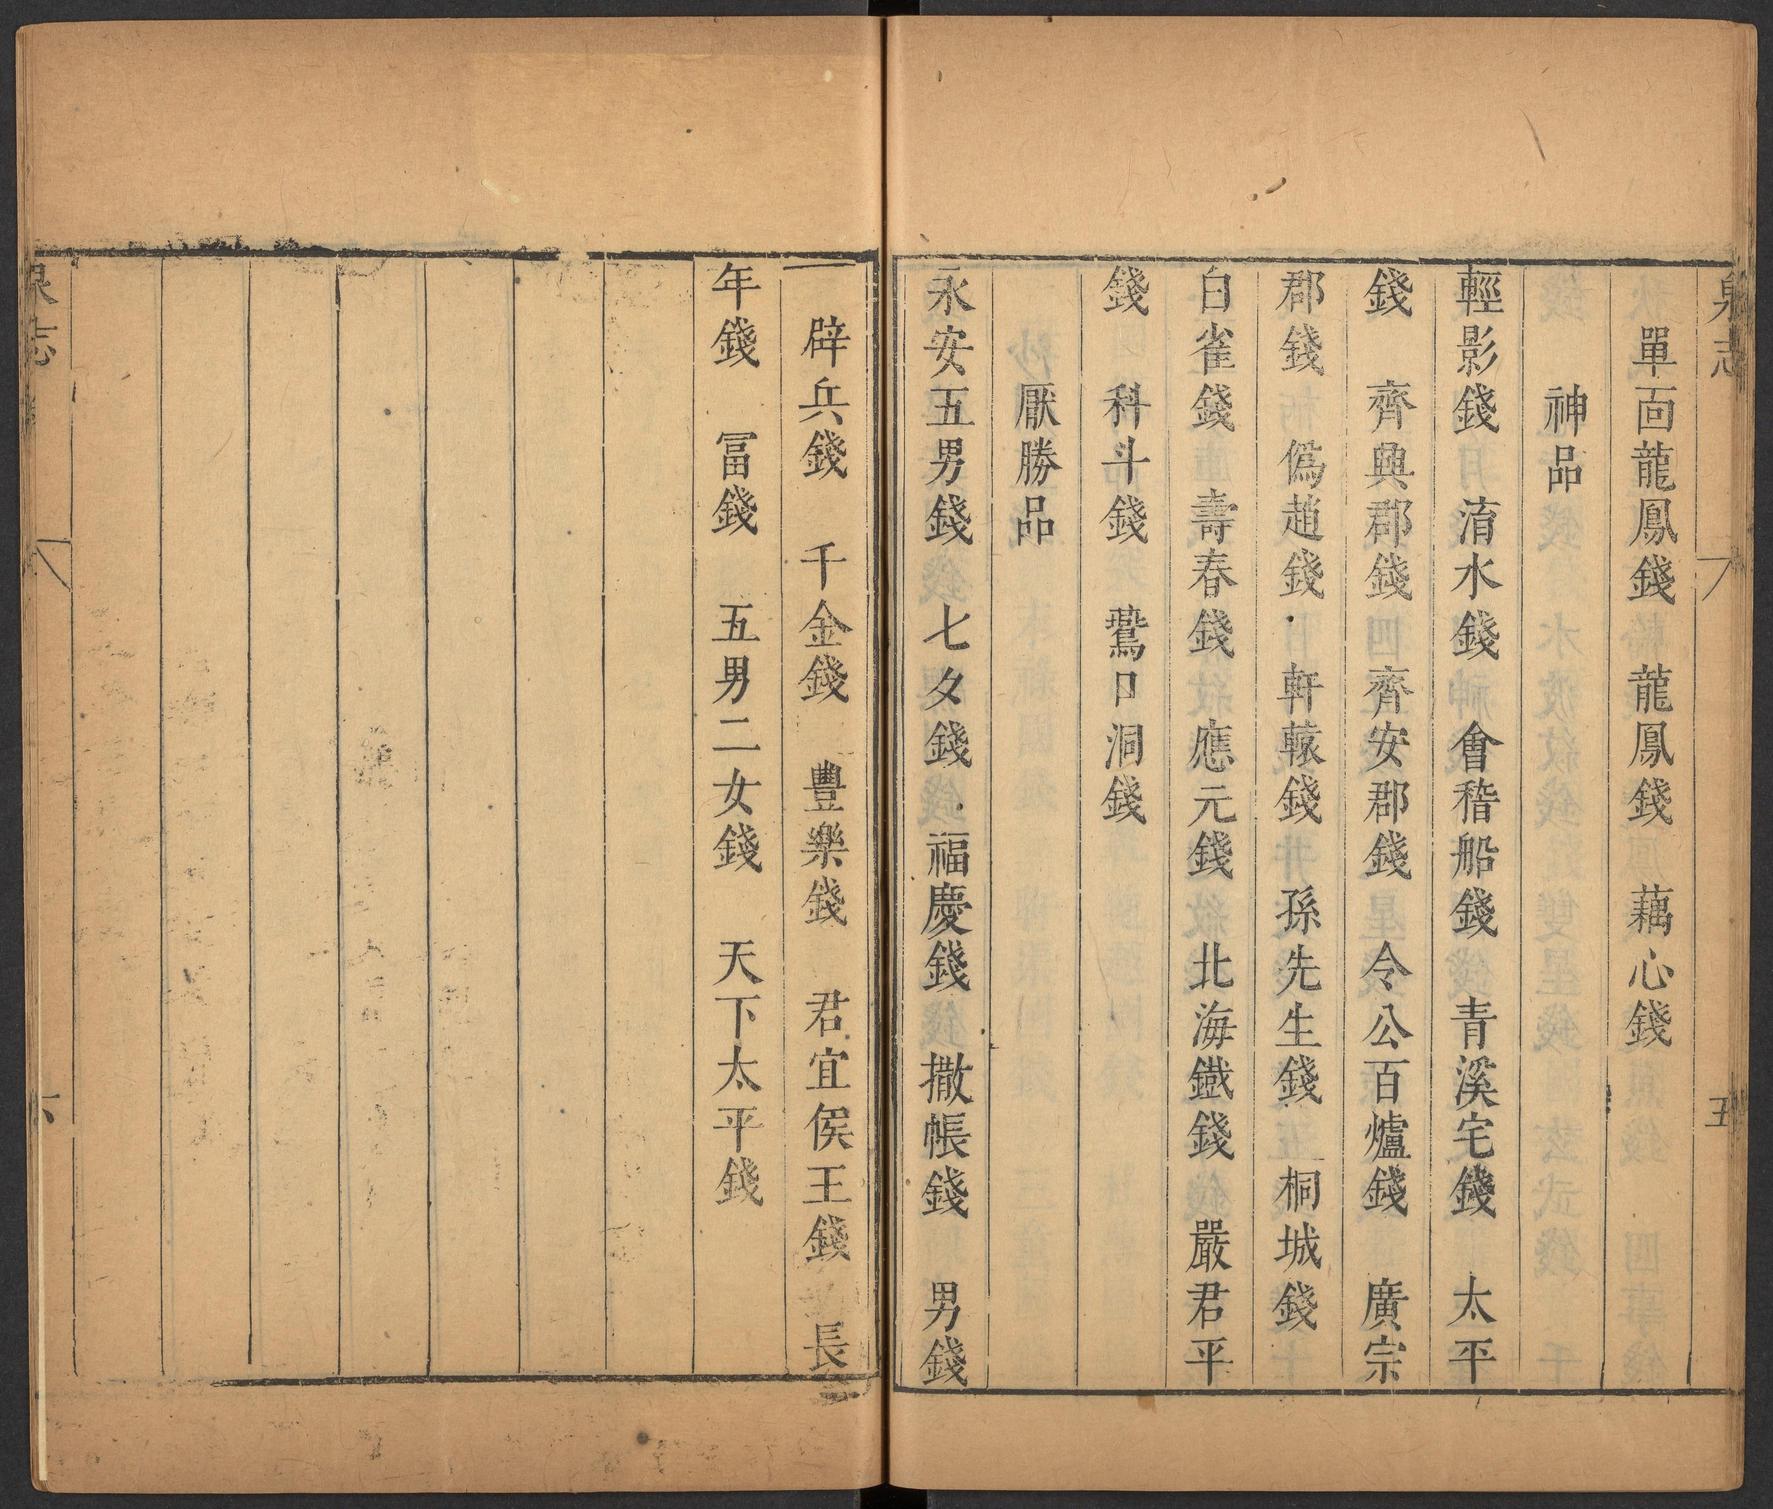 泉志 五
單面龍鳳錢 龍鳳錢 藕心錢
神品
輕影錢 淯水錢 會稽船錢 青溪宅錢 太平
錢 齊興郡錢 齊安郡錢 令公百爐錢 廣宗
郡錢 僞趙錢 軒轅錢 孫先生錢 桐城錢
白雀錢 壽春錢 應元錢 北海鐵錢 嚴君平
錢 科斗錢 鵞口洞錢
厭勝品
永安五男錢 七夕錢 福慶錢 撒帳錢 男錢
辟兵錢 千金錢 豐樂錢 君宜侯王錢 長
年錢 冨錢 五男二女錢 天下太平錢
泉志 六